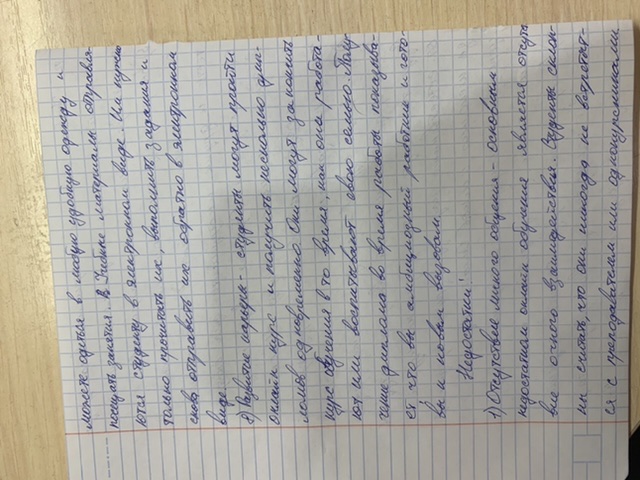 можете одеться в любую удобную одежду и
посещать занятия. в Учебные материалы отправля-
ются студенту в электронном виде. Им нужно
только прочитать их, выполнить задания и
снова отправить их обратно в электронном
виде.
б) Развитие карьеры - студенты могут пройти
онлайн курс и получить несколько дип-
ломов одновременно. Они могут закончить
курс обучения в то время, как они работа-
ют или воспитывают свою семью. Полу-
чение диплома во время работы показыва-
ет что вы амбициозный работник и гото-
вы к новым вызовам.
Недостатки:
1) Отсутствие личного общения - основным
недостатком онлайн обучения является отсутс
вие очного взаимодействия. Студенты склон-
ны считать, что они никогда не встретят-
ся с преподавателем или однокурсниками.